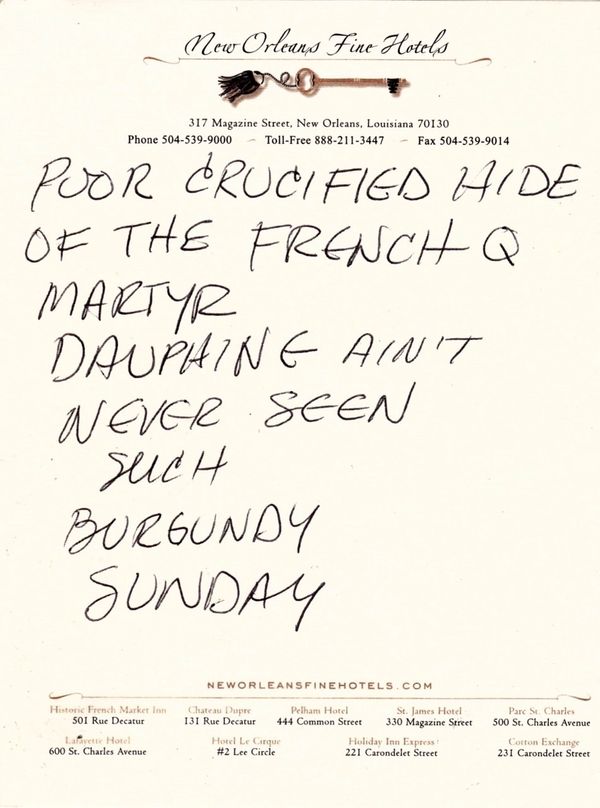 New Orleans Fine Hotels
317 Magazine Street, New Orleans, Louisiana 70130
Phone 504-539-9000 ~ Toll-Free 888-211-3447 ~ Fax 504-539-9014
POOR CRUCIFIED HIDE
OF THE FRENCH Q
MARTYR
DAUPHINE AIN'T
NEVER SEEN
SUCH
BURGUNDY
SUNDAY
NEWORLEANSFINEHOTELS.COM
Historic French Market Inn Chateau Dupre Pelham Hotel St. James Hotel Parc St. Charles
501 Rue Decatur 131 Rue Decatur 444 Common Street 330 Magazine Street 500 St. Charles Avenue
Lafayette Hotel Hotel Le Cirque Holiday Inn Express Cotton Exchange
600 St. Charles Avenue #2 Lee Circle 221 Carondelet Street 231 Carondelet Street